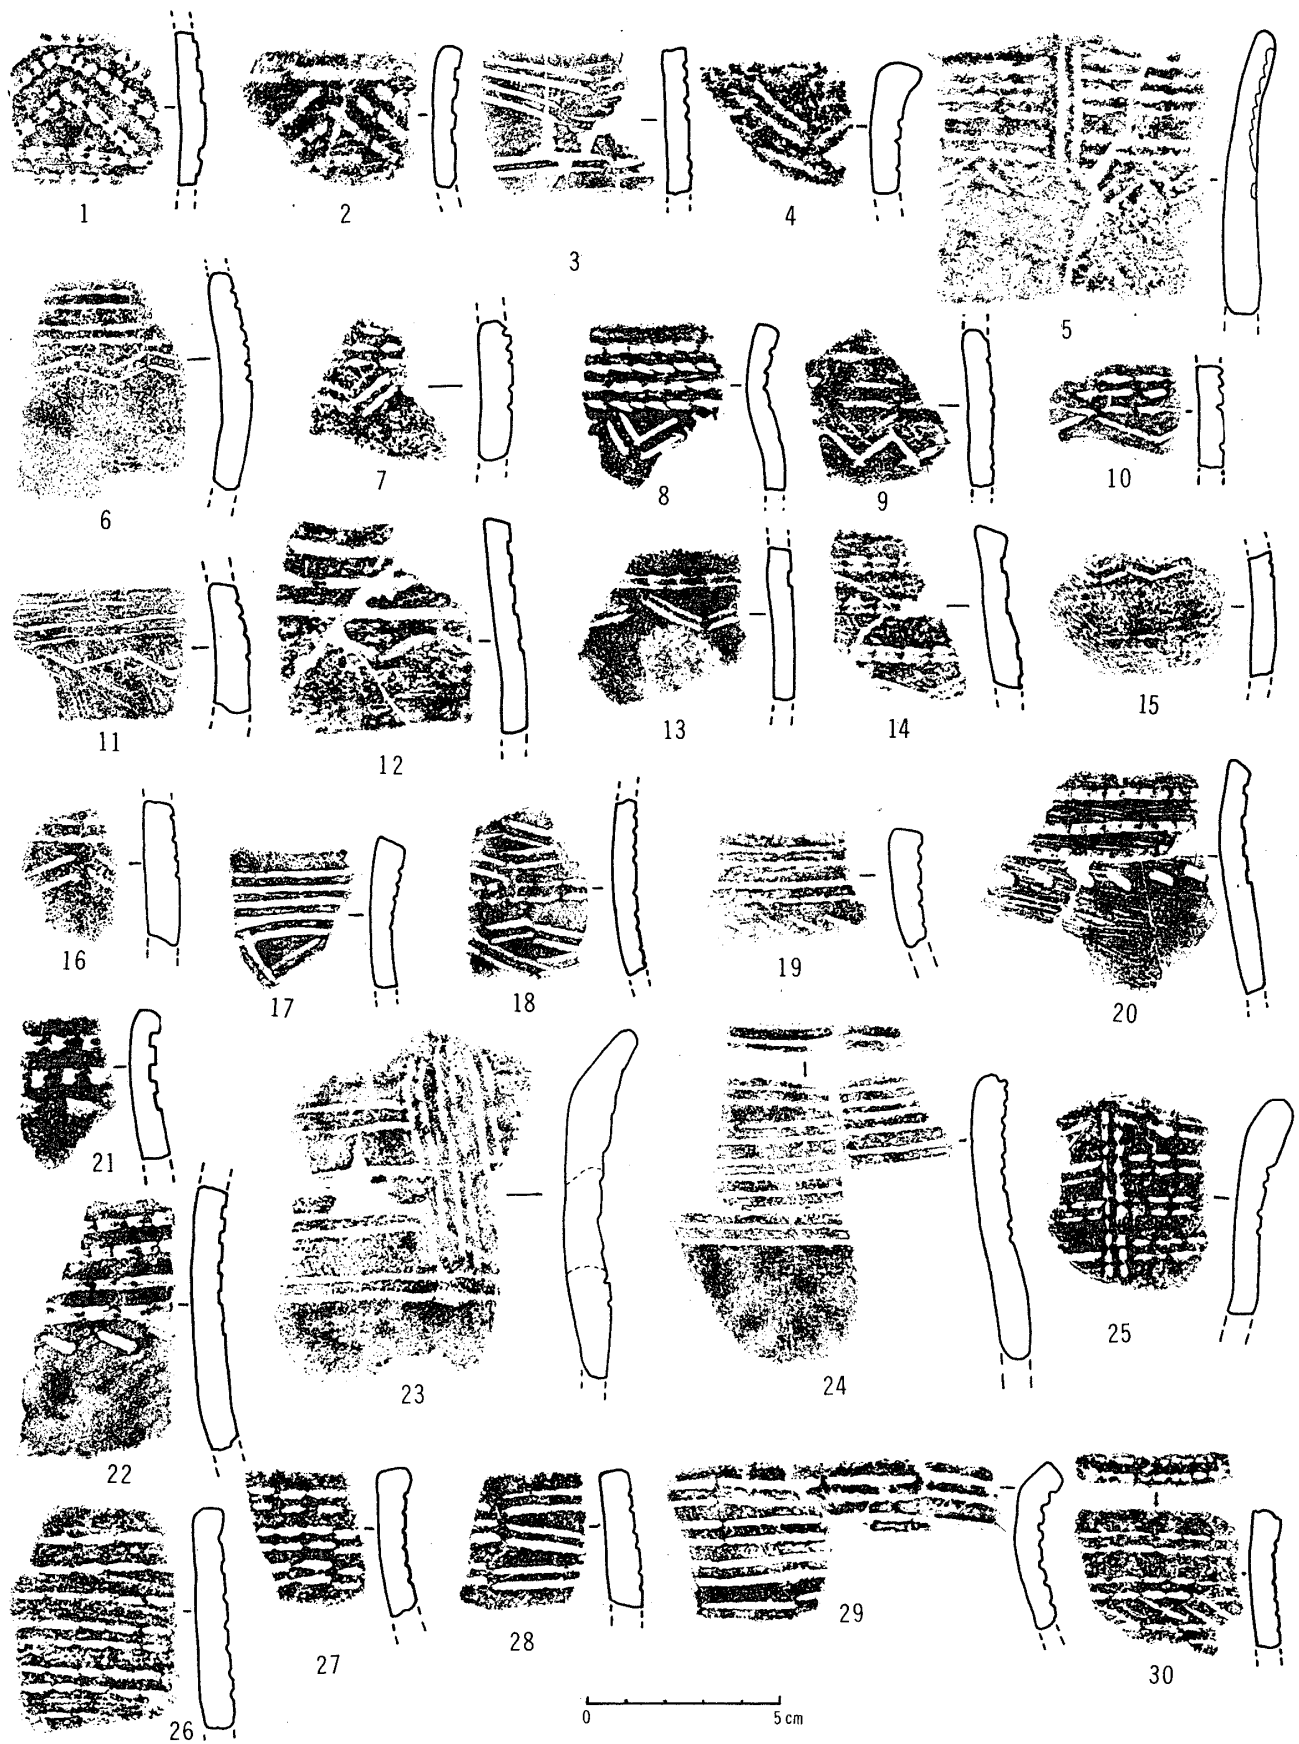 1
2
3
4
5
6
7
8
9
10
11
12
13
14
15
16
17
18
19
20
21
22
23
24
25
26
27
28
29
30
0
5 cm